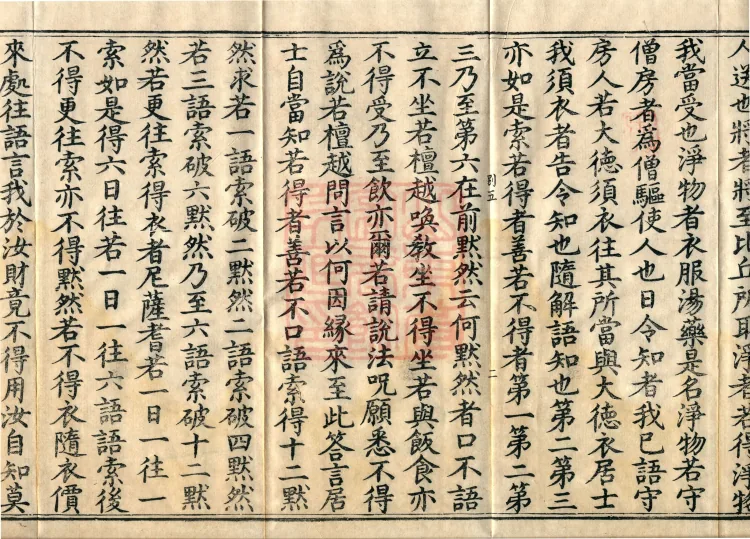 人送也將者將至比丘所取淨者若得淨物
我當受也淨物者衣服湯藥是名淨物若守
僧房者為僧驅使人也日令知者我已語守
房人若大德須衣往其所當與大德衣居士
我須衣者告令知也隨解語知也第二第三
亦如是索若得者善若不得者第一第二第
別五
二
三乃至第六在前默然云何默然者口不語
立不坐若檀越喚教坐不得坐若與飯食亦
不得受乃至飲亦爾若請說法呪願悉不得
為說若檀越問言以何因緣來至此答言居
士自當知若得者善若不口語索得十二默
然求若一語索破二默然二語索破四默然
若三語索破六默然乃至六語索破十二默
然若更往索得衣者尼薩耆若一日一往一
索如是得六日往若一日一往六語語索後
不得更往索亦不得默然若不得衣隨衣價
來處往語言我於汝財竟不得用汝自知莫